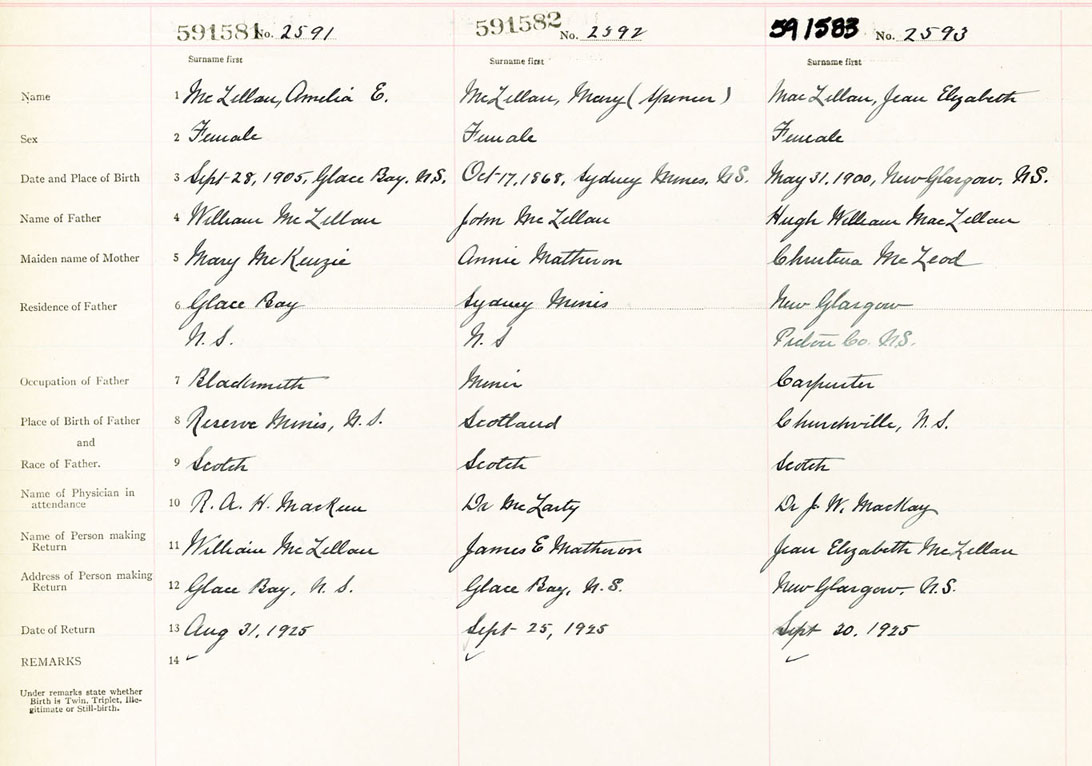 591581 No. 2591 591582 No. 2592 591583 No. 2593
Surname first Surname first Surname first
Name 1 McLellan, Amelia E. McLellan, Mary (Spencer) MacLellan, Jean Elizabeth
Sex 2 Female Female Female
Date and Place of Birth 3 Sept 28, 1905, Glace Bay, N.S. Oct 17, 1868, Sydney Mines, N.S. May 31, 1900, New Glasgow, N.S.
Name of Father 4 William McLellan John McLellan Hugh William MacLellan
Maiden name of Mother 5 Mary McKenzie Annie Matheson Christena McLeod
Residence of Father 6 Glace Bay Sydney Mines New Glasgow
N.S. N.S Pictou Co. N.S.
Occupation of Father 7 Blacksmith Miner Carpenter
Place of Birth of Father 8 Reserve Mines, N.S. Scotland Churchville, N.S.
and
Race of Father. 9 Scotch Scotch Scotch
Name of Physician in attendance 10 R. A. H. MacKeen Dr McLarty Dr J. W. MacKay
Name of Person making Return 11 William McLellan James E Matheson Jean Elizabeth McLellan
Address of Person making Return 12 Glace Bay, N.S. Glace Bay, N.S. New Glasgow, N.S.
Date of Return 13 Aug 31, 1925 Sept 25, 1925 Sept 30, 1925
REMARKS 14
Under remarks state whether
Birth is Twin, Triplet, Ille-
gitimate or Still-birth.